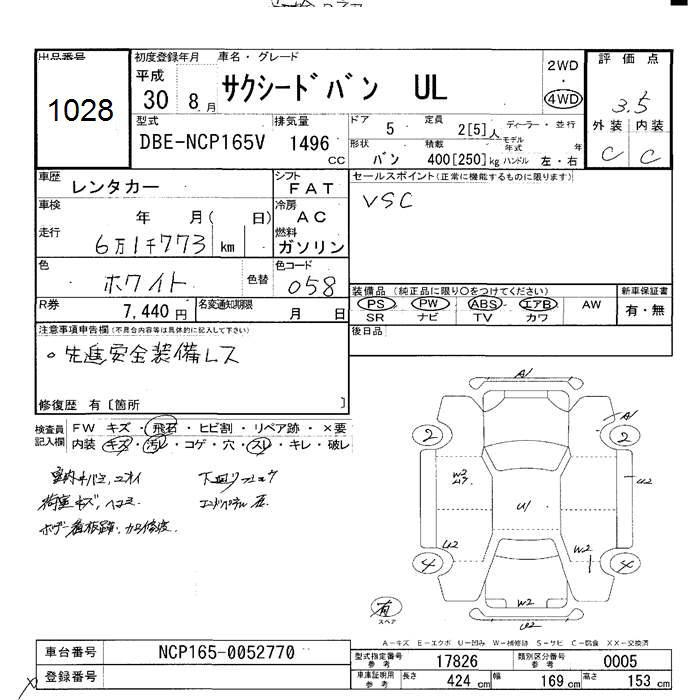 出品番号
1028
初度登録年月
平成
30 8月
車名・グレード
サクシードバン UL
2WD
・
4WD
評価点
3.5
外装 内装
C C
型式
DBE-NCP165V
排気量
1496
CC
ドア
5
定員
2[5]人
ディーラー・並行
形状
バン
積載
400[250]kg
モデル年式 年
ハンドル 左・右
車歴
レンタカー
シフト
FAT
車検
年 月( 日)
冷房
AC
走行
6万1千773 km
燃料
ガソリン
色
ホワイト
色替
色コード
058
R券
7,440円
名変通知期限
月 日
セールスポイント(正常に機能するものに限ります)
VSC
装備品(純正品に限り○をつけてください)
PS PW ABS エアB AW
SR ナビ TV カワ
新車保証書
有・無
後日品
注意事項申告欄(不具合内容等は具体的に記入して下さい)
○先進安全装備レス
修復歴 有[箇所 ]
検査員
記入欄
FW キズ・飛石・ヒビ割・リペア跡・×要
内装 キズ・汚れ・コゲ・穴・スレ・キレ・破レ
A1
A1
2
2
W3
U2
U1
U2
W2
4
4
W2
U2
有
スペア
A-キズ E-エクボ U-凹み W-補修跡 S-サビ C-腐食 XX-交換済
車台番号
NCP165-0052770
登録番号
型式指定番号
参考
17826
類別区分番号
参考
0005
車庫証明用
参考
長さ 424 cm 幅 169 cm 高さ 153 cm